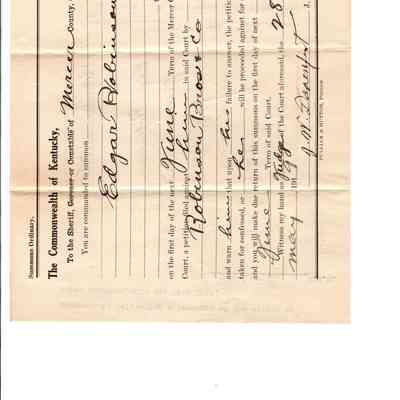 Summons Ordinary.
The Commonwealth of Kentucky,
To the Sheriff, Coroner or Constable of Mercer County,
You are commanded to summon
Edgar Robinson
on the first day of the next June Term of the Mercer
Court, a petition filed against him in said Court by
Robinson Bros & Co
and warn him that upon his failure to answer, the petition
taken for confessed, or he will be proceeded against for
and you will make due return of this summons on the first day of next
June Term of said Court.
Witness my hand as Judge of the Court aforesaid, the 28
May 191
J. W. Davenport